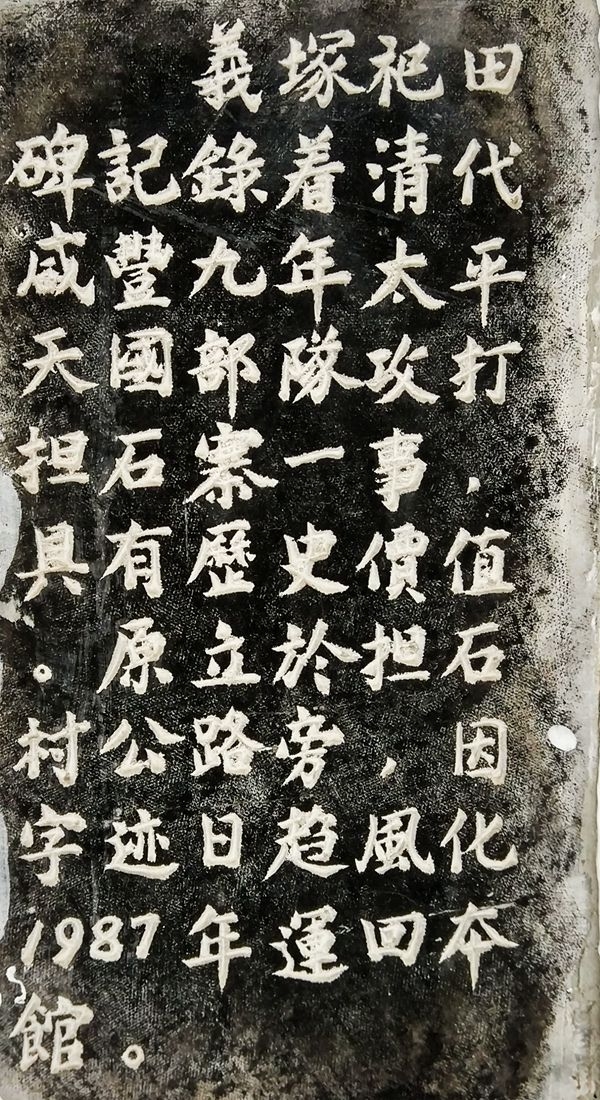 義塚祀田
碑記錄着清代
咸豐九年太平
天國部隊攻打
担石寨一事，
具有歷史價值
。原立於担石
村公路旁，因
字迹日趋風化
1987年運回本
館。